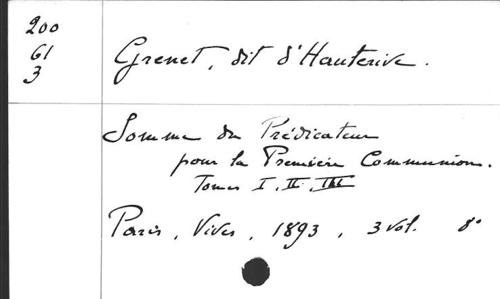 200
61
3
Grenet, dit d'Hauterive.
Somme du Prédicateur
pour la Première Communion.
Tomes I, II, III
Paris, Vivès, 1893, 3 vol. 8º